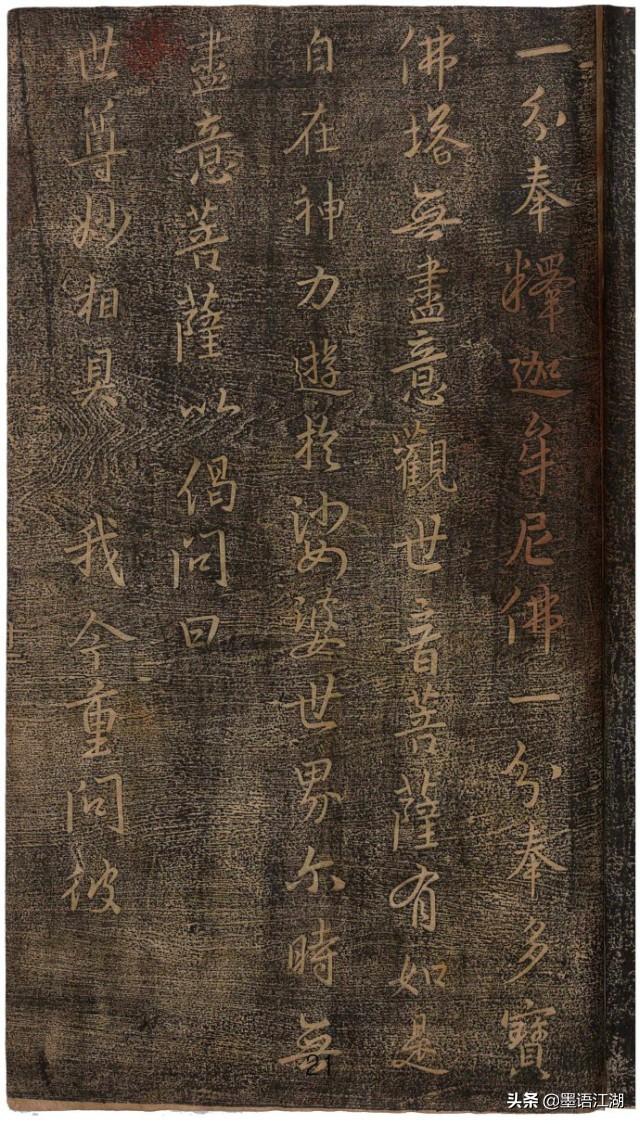 一分奉釋迦牟尼佛一分奉多寶
佛塔無盡意觀世音菩薩有如是
自在神力遊於娑婆世界尔時無
盡意菩薩以偈問曰
世尊妙相具 我今重問彼
21
头条 @墨语江湖